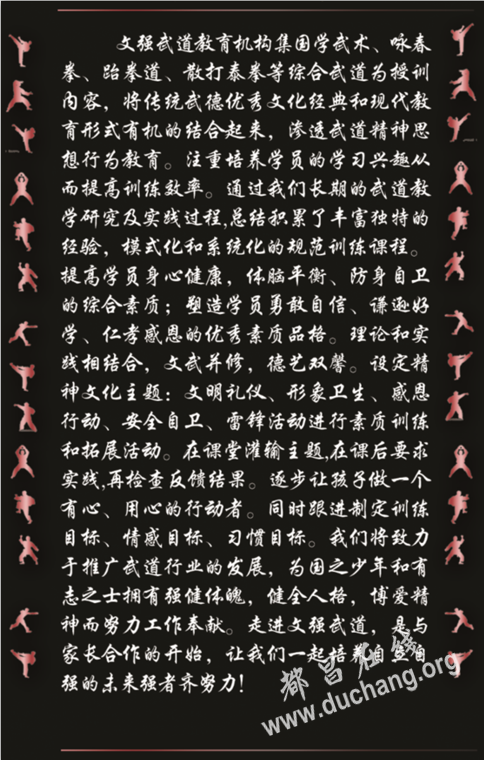 文强武道教育机构集国学武术、咏春
拳、跆拳道、散打泰拳等综合武道为授训
内容，将传统武德优秀文化经典和现代教
育形式有机的结合起来，渗透武道精神思
想行为教育。注重培养学员的学习兴趣从
而提高训练效率。通过我们长期的武道教
学研究及实践过程,总结积累了丰富独特的
经验，模式化和系统化的规范训练课程。
提高学员身心健康，体脑平衡、防身自卫
的综合素质；塑造学员勇敢自信、谦逊好
学、仁孝感恩的优秀素质品格。理论和实
践相结合，文武并修，德艺双馨。设定精
神文化主题：文明礼仪、形象卫生、感恩
行动、安全自卫、雷锋活动进行素质训练
和拓展活动。在课堂灌输主题,在课后要求
实践,再检查反馈结果。逐步让孩子做一个
有心、用心的行动者。同时跟进制定训练
目标、情感目标、习惯目标。我们将致力
于推广武道行业的发展，为国之少年和有
志之士拥有强健体魄，健全人格，博爱精
神而努力工作奉献。走进文强武道，是与
家长合作的开始，让我们一起培养自立自
强的未来强者齐努力！
都昌在线
www.duchang.org